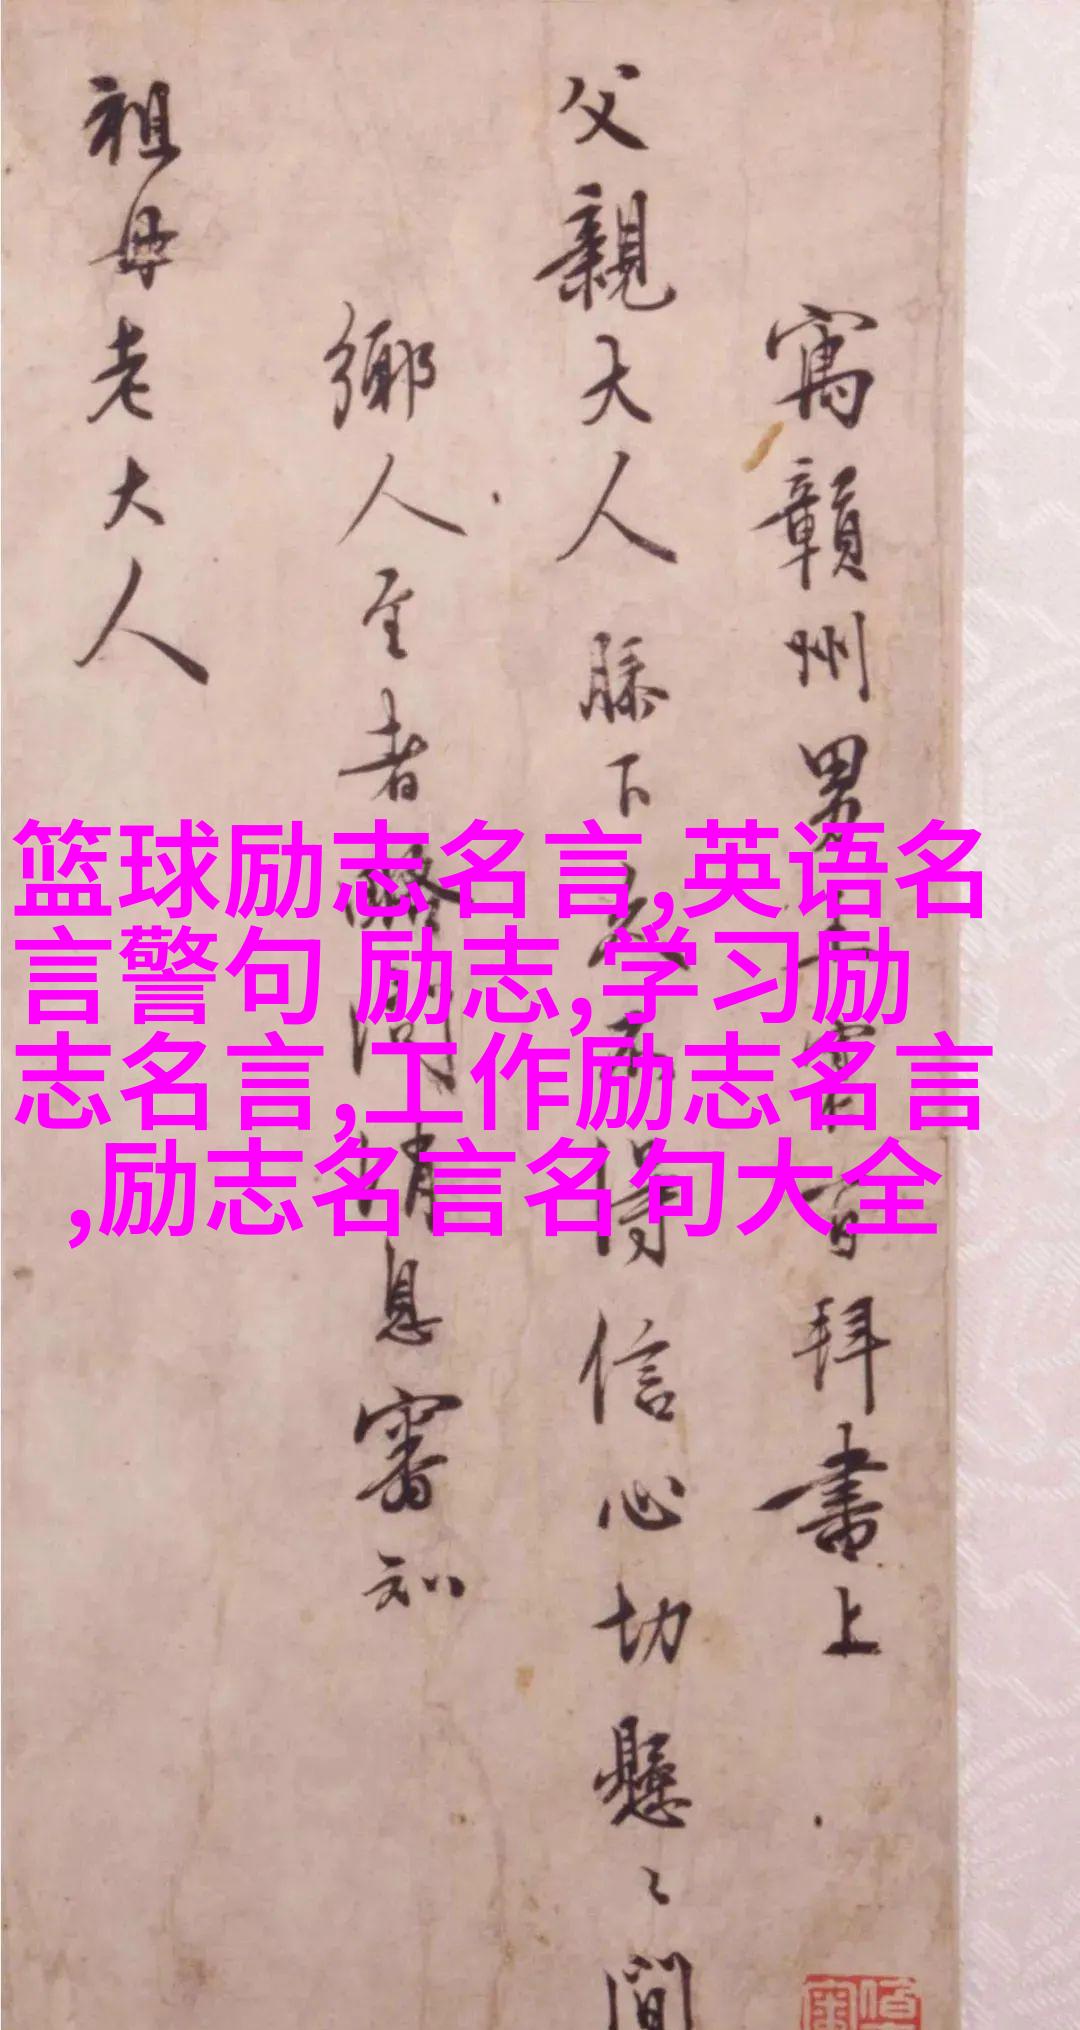 篮球励志名言,英语名
言警句 励志,学习励
志名言,工作励志名言
,励志名言名句大全
寓贛州男百拜書上
父親大人膝下得信心切懸々間
鄉人至者問消息審知
祖母老大人